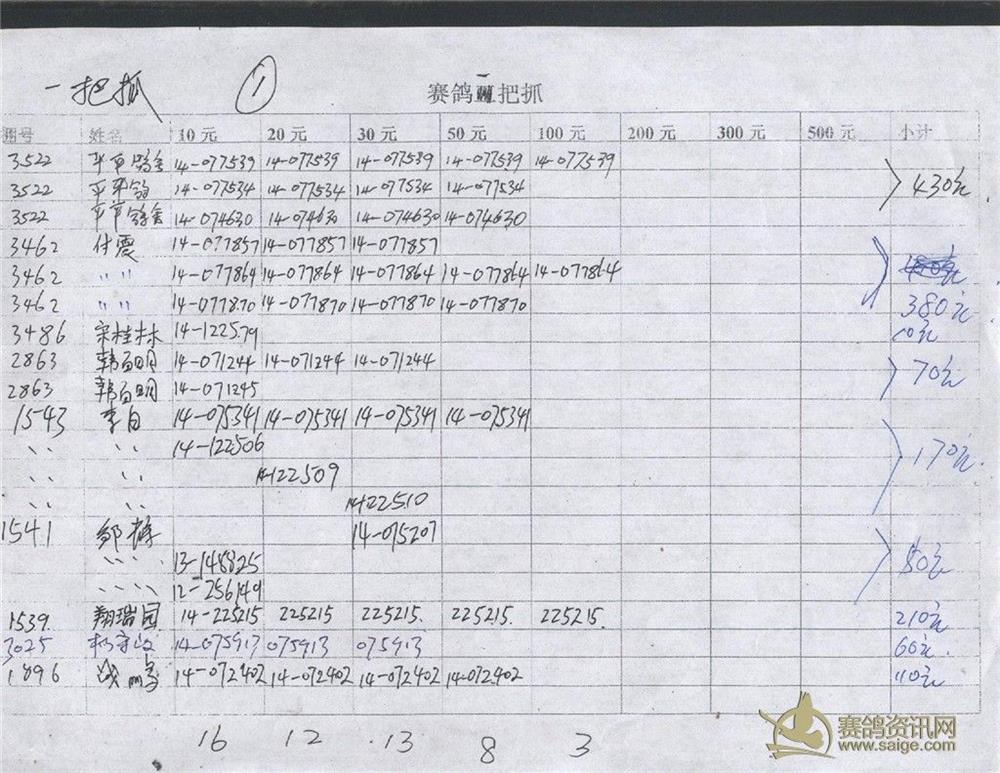 一把抓 ①
赛鸽一把抓
棚号 姓名 10元 20元 30元 50元 100元 200元 300元 500元 小计
3522 平平鸽舍 14-077539 14-077539 14-077539 14-077539 14-077539
3522 平平鸽 14-077534 14-077534 14-077534 14-077534 430元
3522 平平鸽舍 14-074630 14-074630 14-074630 14-074630
3462 付震 14-077857 14-077857 14-077857
3462 〃 〃 14-077864 14-077864 14-077864 14-077864 14-077864
3462 〃 〃 14-077870 14-077870 14-077870 14-077870 380元
3486 宋桂林 14-122579 10元
2863 韩百明 14-071244 14-071244 14-071244 70元
2863 韩百明 14-071245
1543 李自 14-075341 14-075341 14-075341 14-075341
〃 〃 14-122506 170元
〃 〃 14122509
〃 〃 14122510
1541 邹 14-075207
〃 〃 13-148825 50元
〃 〃 12-256149
1539 翔瑞园 14-225215 225215 225215. 225215. 225215. 210元
3025 14-075913 075913 075913 60元.
1896 14-072402 14-072402 14-072402 14-072402 110元
16 12 13 8 3
赛鸽资讯网
www.saige.com